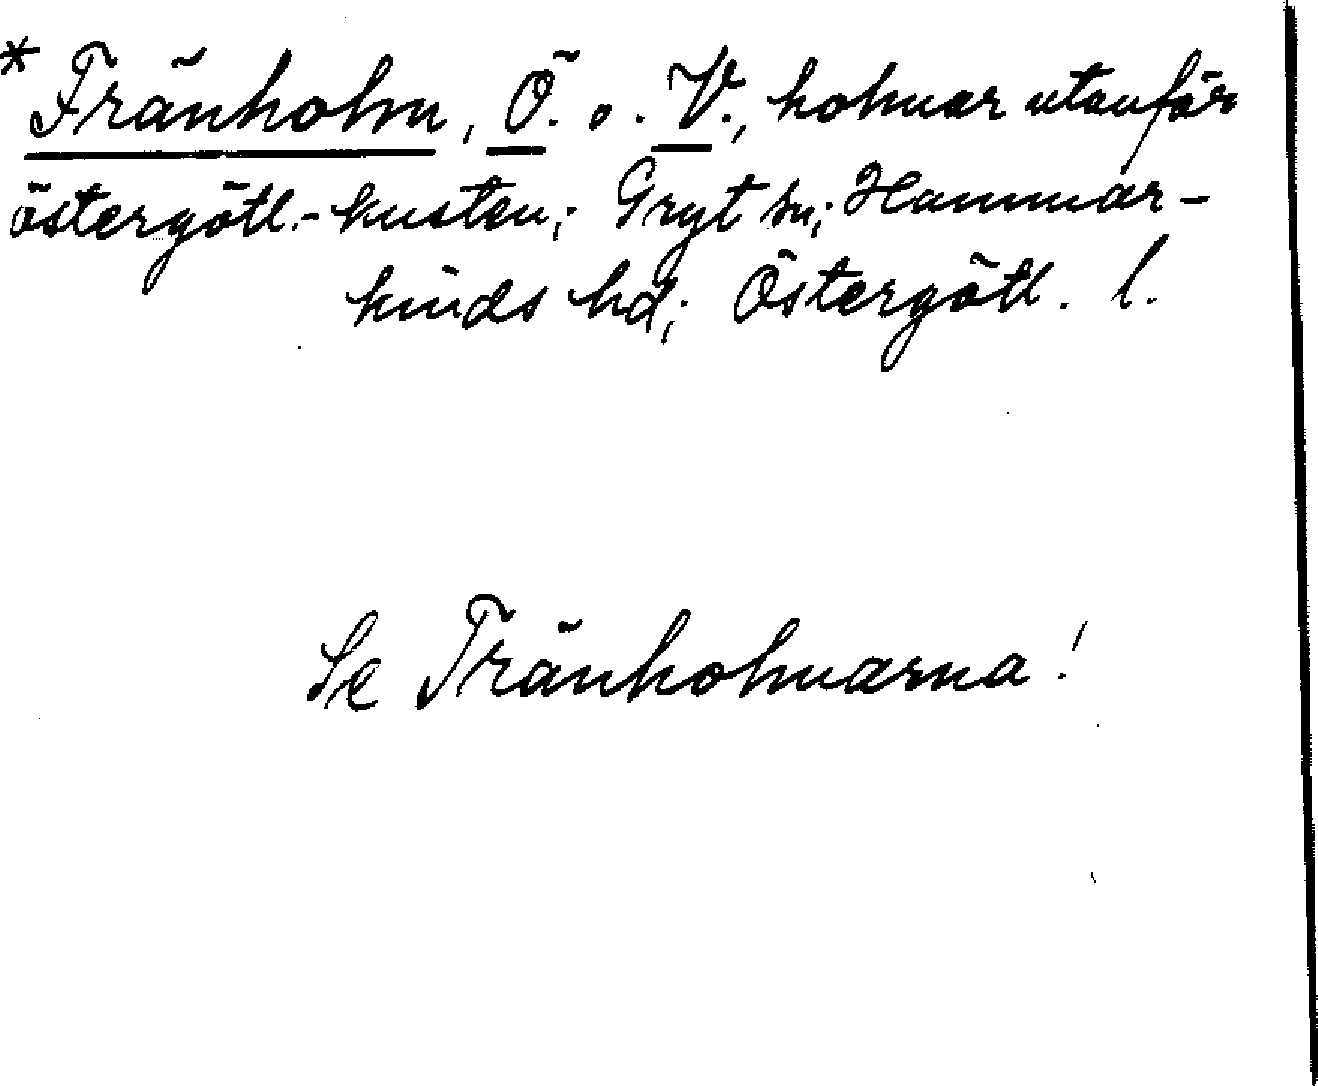 * Fränholm, Ö. o. V., holmar utanför
östergötl.-kusten; Gryt sn; Hammar-
kinds hd; Östergötl. l.
Se Tränholmarna!